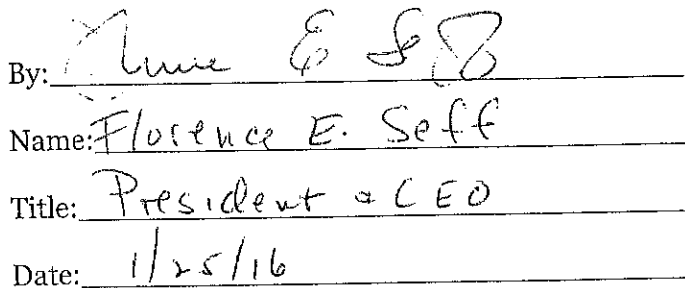 By:
Name: Florence E. Seff
Title: President & CEO
Date: 1/25/16